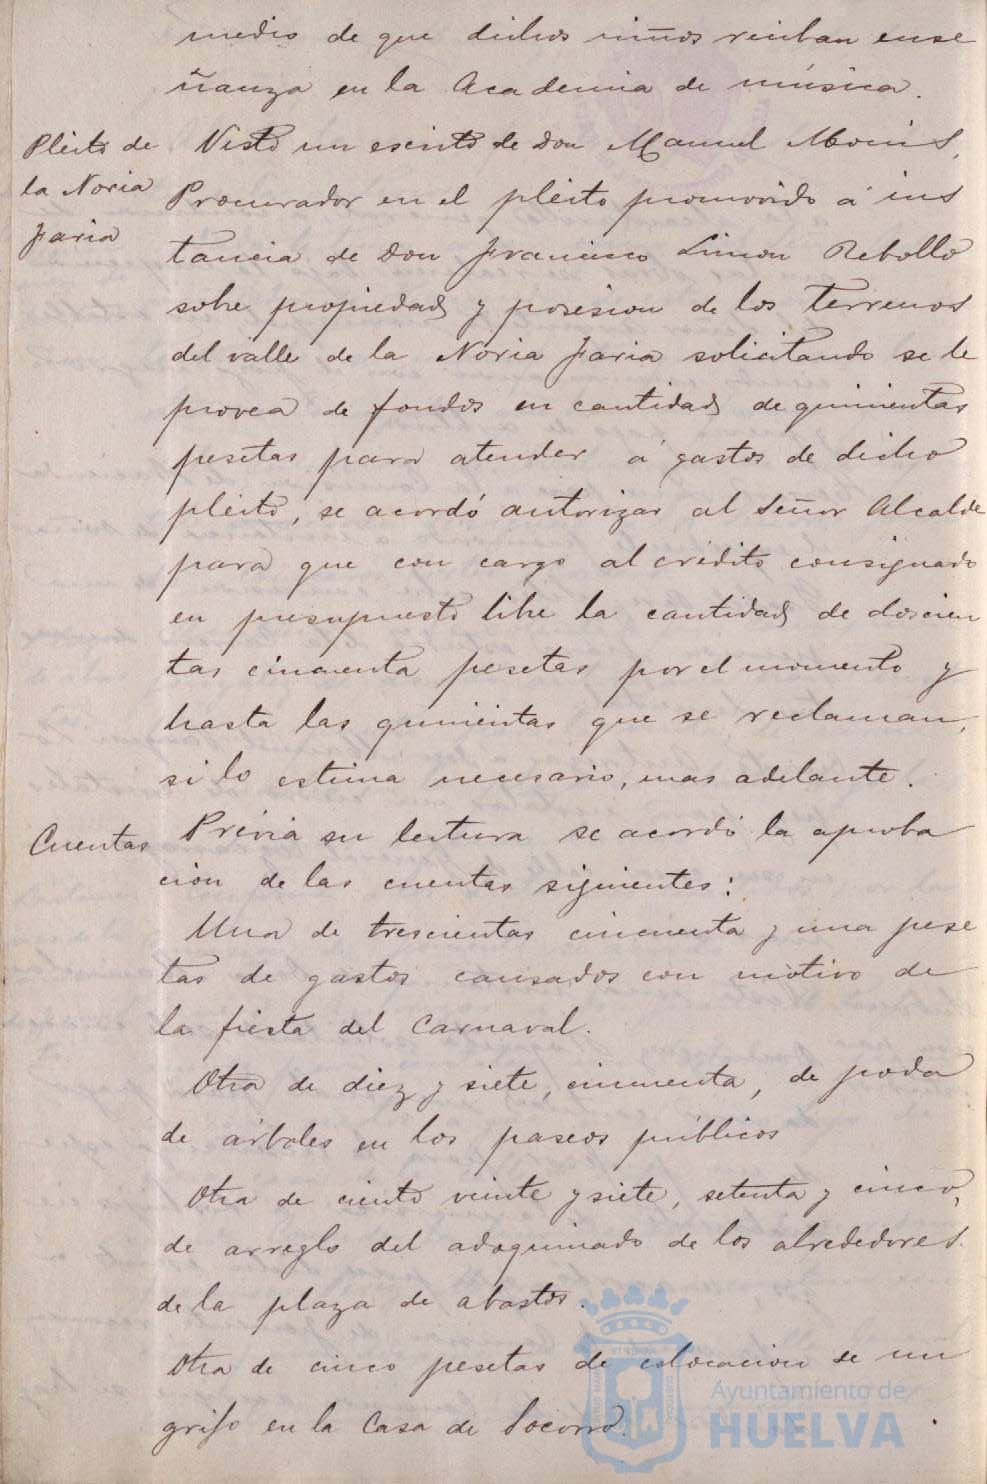 medio de que dichos niños reciban ense
ñanza en la Academia de música.
Pleito de
la Noria
Faria
Visto un escrito de Don Manuel
Procurador en el pleito promovido á ins
tancia de Don Francisco Limon Rebollo
sobre propiedad y posesion de los terrenos
del valle de la Noria Faria solicitando se le
provea de fondos en cantidad de quinientas
pesetas para atender á gastos de dicho
pleito, se acordó autorizar al Señor Alcalde
para que con cargo al crédito consignado
en presupuesto libre la cantidad de doscien
tas cincuenta pesetas por el momento y
hasta las quinientas que se reclaman,
si lo estima necesario, mas adelante.
Cuentas
Prévia su lectura se acordó la aproba
cion de las cuentas siguientes:
Una de trescientas cincuenta y una pese
tas de gastos causados con motivo de
la fiesta del Carnaval.
Otra de diez y siete, cincuenta, de poda
de árboles en los paseos públicos
Otra de ciento veinte y siete, setenta y cinco,
de arreglo del adoquinado de los alrededores
de la plaza de abastos.
Otra de cinco pesetas de colocacion de un
grifo en la Casa de Socorro.
Ayuntamiento de
HUELVA